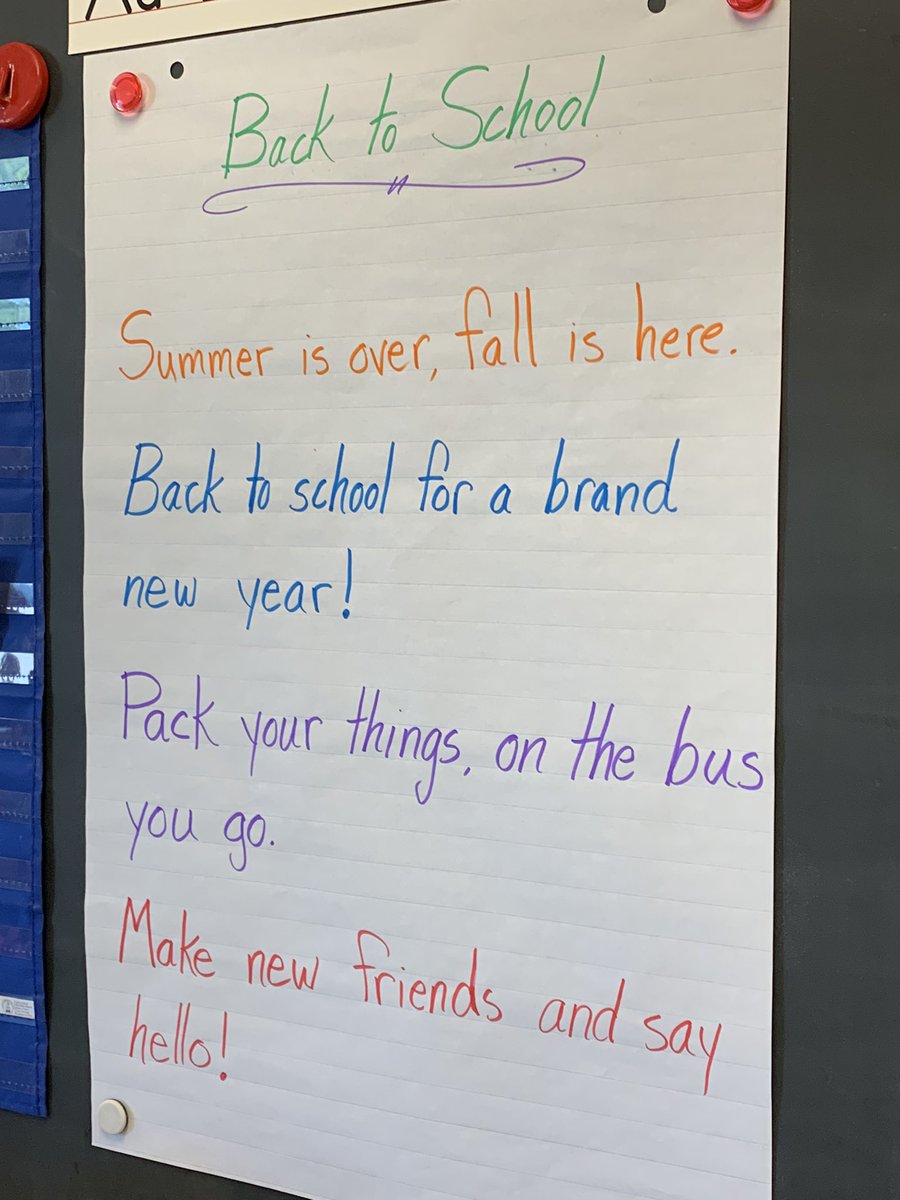 Back to School
Summer is over, fall is here.
Back to school for a brand
new year!
Pack your things, on the bus
you go.
Make new friends and say
hello!